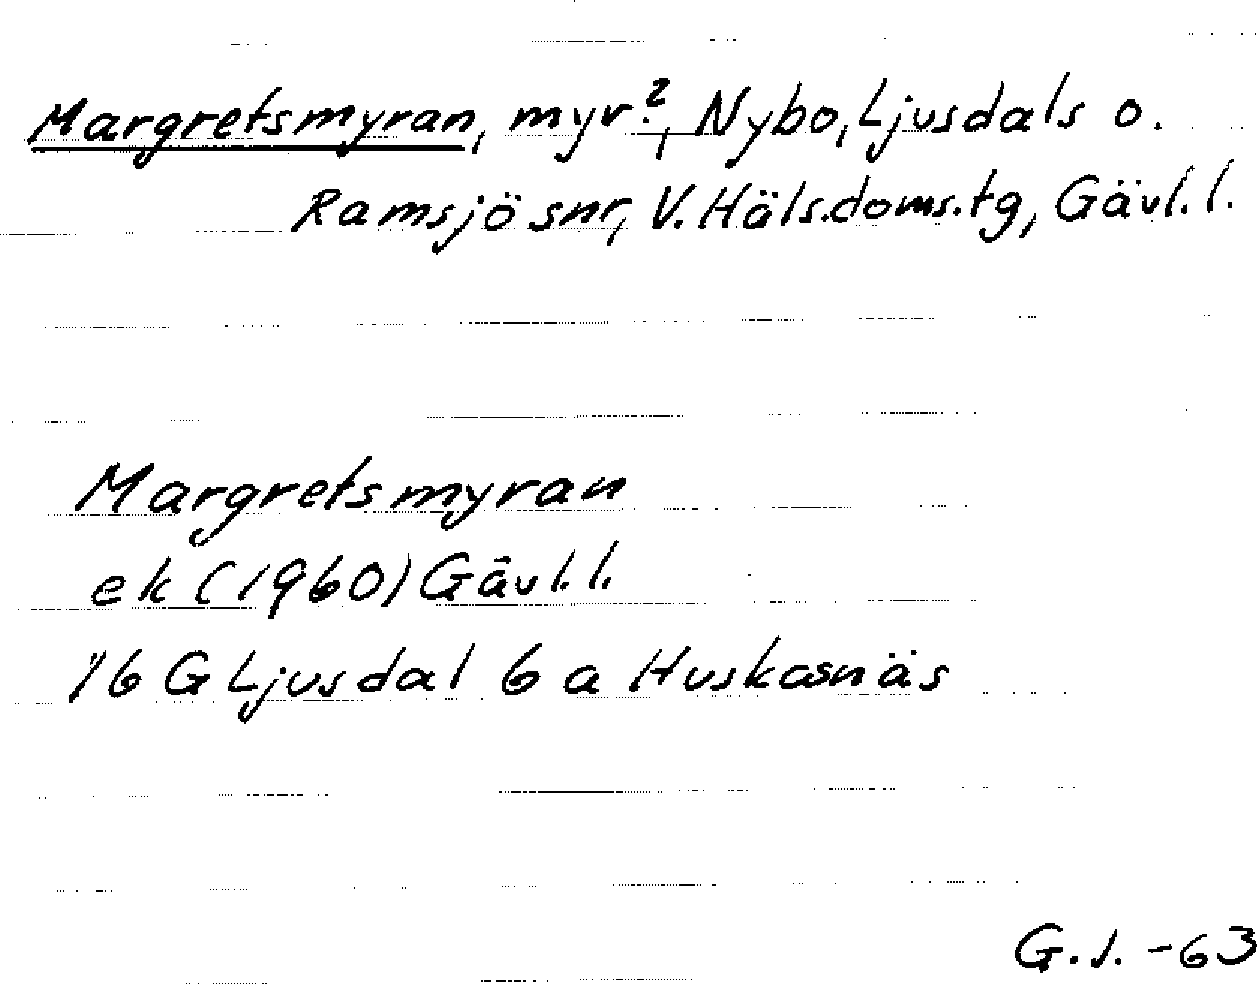 Margretsmyran, myr?, Nybo, Ljusdals o.
Ramsjö snr, V. Häls.doms.tg, Gävl. l.
Margretsmyran
ek (1960) Gävl. l.
16 G Ljusdal 6 a Huskasnäs
G.J. -63